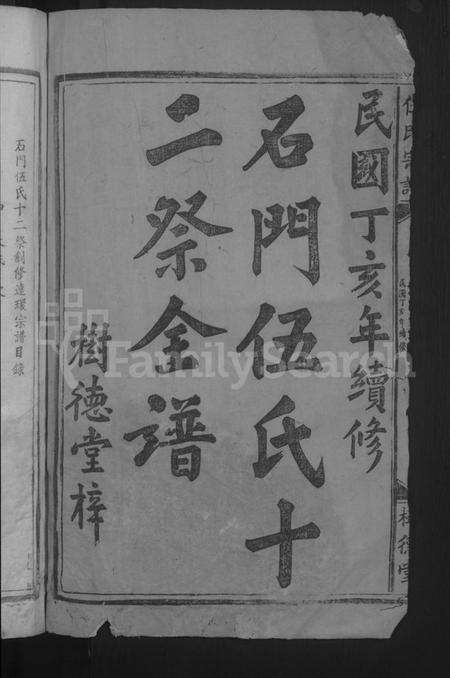 民國丁亥年續修
石門伍氏十
二祭金譜
樹德堂梓
石門伍氏十二祭創修連環宗譜目錄
FamilySearch